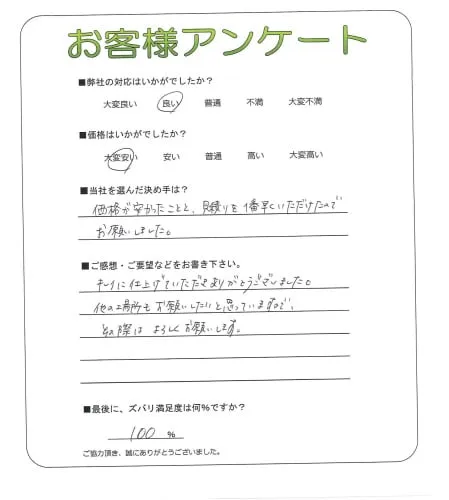 お客様アンケート
■弊社の対応はいかがでしたか？
大変良い 良い 普通 不満 大変不満
■価格はいかがでしたか？
大変安い 安い 普通 高い 大変高い
■当社を選んだ決め手は？
価格が安かったことと、見積りを1番早くいただけたので
お願いしました。
■ご感想・ご要望などをお書き下さい。
キレイに仕上げていただきありがとうございました。
他の場所もお願いしたいと思っていますので、
その際はよろしくお願いします。
■最後に、ズバリ満足度は何％ですか？
100 %
ご協力頂き、誠にありがとうございました。